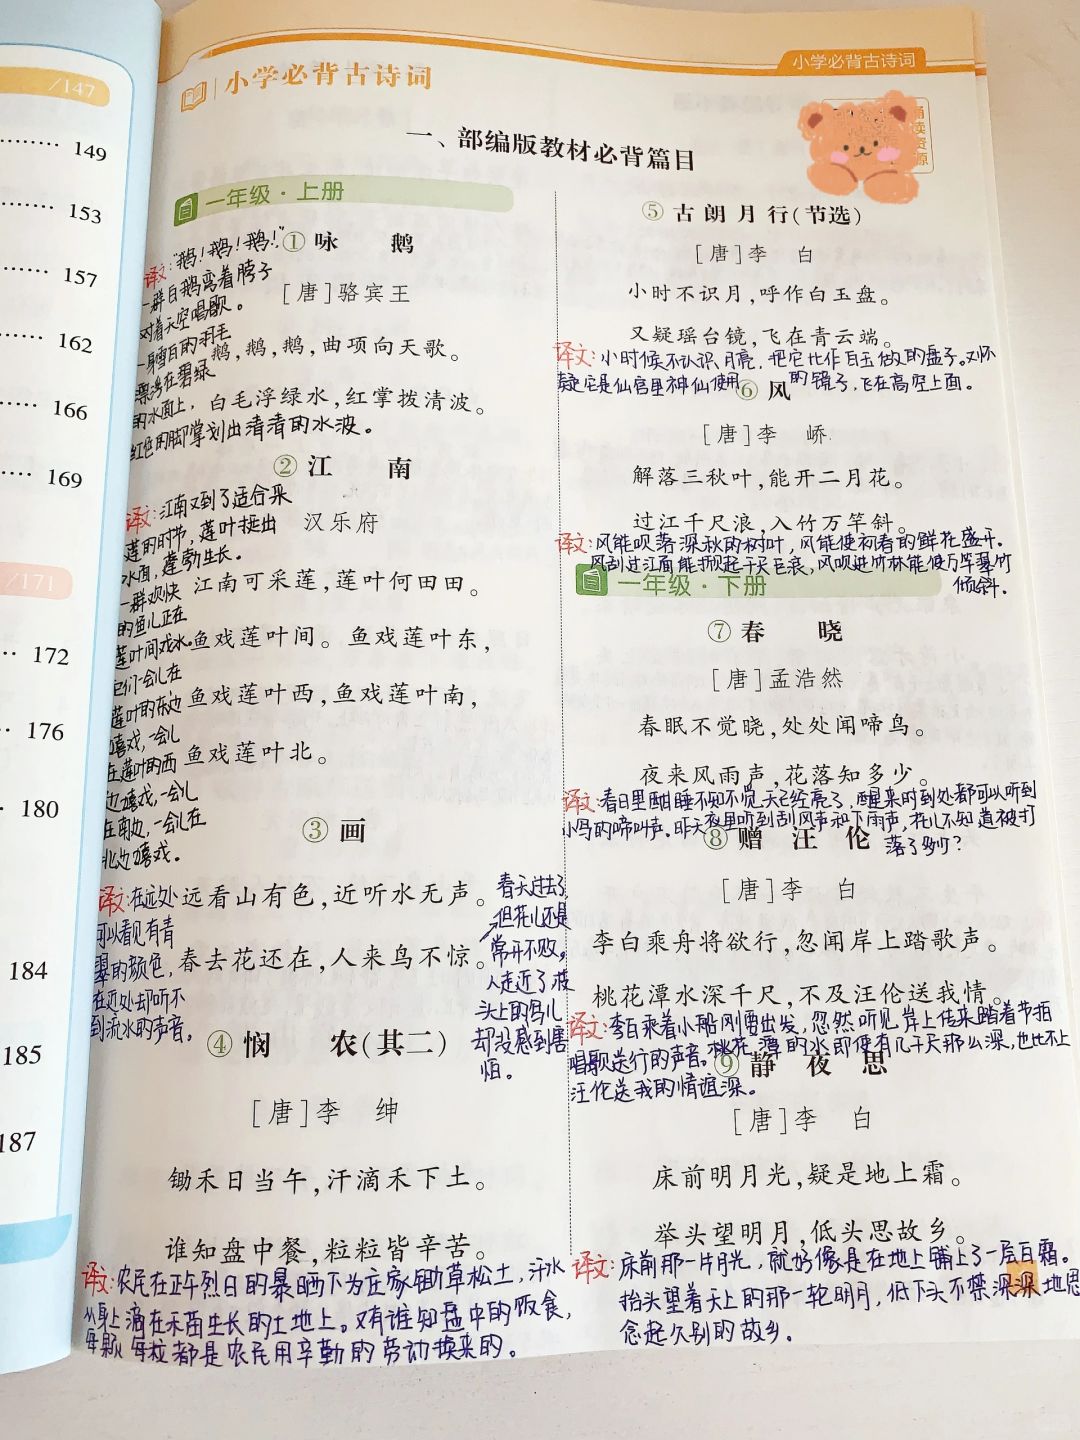 /147
149
153
157
162
166
169
/171
172
176
180
184
185
187
小学必背古诗词
小学必背古诗词
诵读资源
一、部编版教材必背篇目
一年级·上册
①咏 鹅
[唐]骆宾王
鹅,鹅,鹅,曲项向天歌。
白毛浮绿水,红掌拨清波。
译文:"鹅!鹅!鹅!"
一群白鹅弯着脖子
对着天空唱歌。
一身雪白的羽毛
漂浮在碧绿
的水面上,
红色的脚掌划出清清的水波。
②江 南
汉乐府
江南可采莲,莲叶何田田。
鱼戏莲叶间。鱼戏莲叶东,
鱼戏莲叶西,鱼戏莲叶南,
鱼戏莲叶北。
译文:江南又到了适合采
莲的时节,莲叶挺出
水面,蓬勃生长。
一群欢快
的鱼儿正在
莲叶间戏水。
它们一会儿在
莲叶的东边
嬉戏,一会儿
在莲叶的西
边嬉戏,一会儿
在南边,一会儿在
北边嬉戏。
③画
远看山有色,近听水无声。
春去花还在,人来鸟不惊。
译文:在远处
可以看见有青
翠的颜色,
在近处却听不
到流水的声音。
春天过去了,
但花儿还是
常开不败。
人走近了,枝
头上的鸟儿
却没感到害
怕。
④悯 农(其二)
[唐]李 绅
锄禾日当午,汗滴禾下土。
谁知盘中餐,粒粒皆辛苦。
译文:农民在正午烈日的暴晒下为庄家锄草松土,汗水
从身上滴在禾苗生长的土地上。又有谁知盘中的饭食,
每颗每粒都是农民用辛勤的劳动换来的。
⑤古朗月行(节选)
[唐]李 白
小时不识月,呼作白玉盘。
又疑瑶台镜,飞在青云端。
译文:小时候不认识月亮,把它比作白玉做的盘子。又怀
疑它是仙宫里神仙使用的镜子,飞在高空上面。
⑥风
[唐]李 峤
解落三秋叶,能开二月花。
过江千尺浪,入竹万竿斜。
译文:风能吹落深秋的树叶,风能使初春的鲜花盛开。
风刮过江面能掀起千尺巨浪,风吹进竹林能使万竿翠竹
倾斜。
一年级·下册
⑦春 晓
[唐]孟浩然
春眠不觉晓,处处闻啼鸟。
夜来风雨声,花落知多少。
译文:春日里酣睡不知不觉天已经亮了,醒来时到处都可以听到
小鸟的啼叫声。昨天夜里听到刮风声和下雨声,花儿不知道被打
落了多少?
⑧赠汪伦
[唐]李 白
李白乘舟将欲行,忽闻岸上踏歌声。
桃花潭水深千尺,不及汪伦送我情。
译文:李白乘着小船刚要出发,忽然听见岸上传来踏着节拍
唱歌送行的声音。桃花潭的水即便有几千尺那么深,也比不上
汪伦送我的情谊深。
⑨静夜思
[唐]李 白
床前明月光,疑是地上霜。
举头望明月,低头思故乡。
译文:床前那一片月光,就好像是在地上铺上了一层白霜。
抬头望着天上的那一轮明月,低下头不禁深深地思
念起久别的故乡。